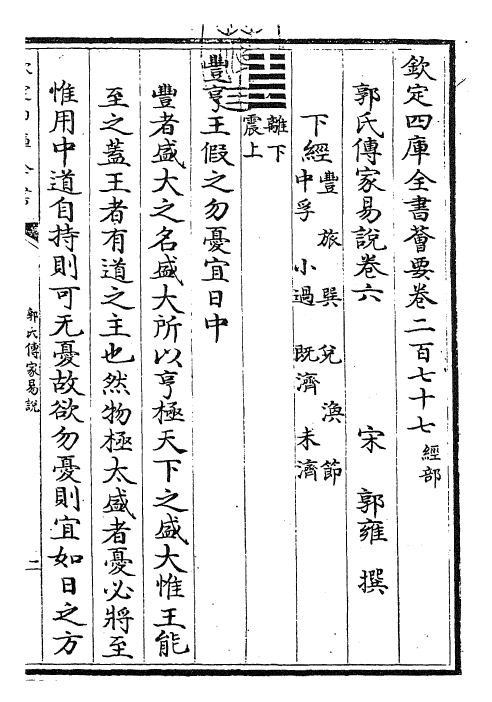 欽定四庫全書薈要卷二百七十七 經部
郭氏傳家易說卷六
宋 郭雍 撰
下經 豐 旅 巽 兌 渙 節
中孚 小過 既濟 未濟
離下
震上
豐亨王假之勿憂宜日中
豐者盛大之名盛大所以亨極天下之盛大惟王能
至之蓋王者有道之主也然物極太盛者憂必將至
惟用中道自持則可无憂故欲勿憂則宜如日之方
郭氏傳家易說
二